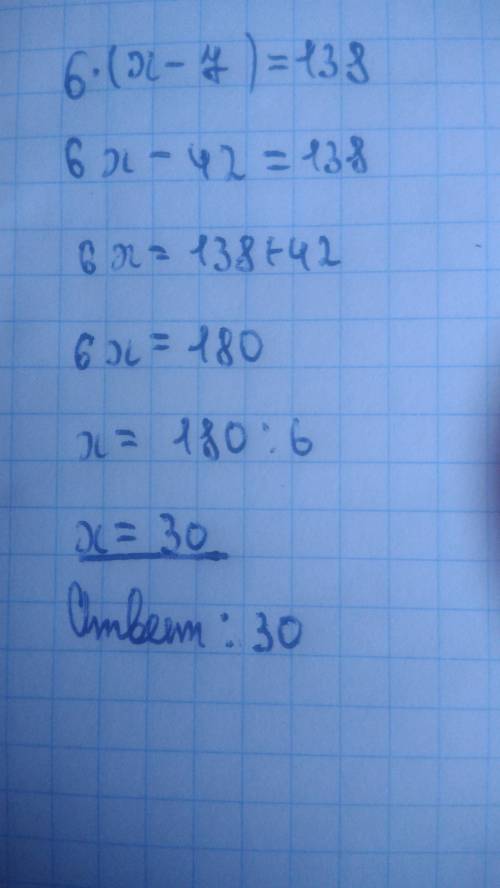 6·(x-7)=138
6x-42=138
6x=138+42
6x=180
x=180:6
x=30
Ответ: 30